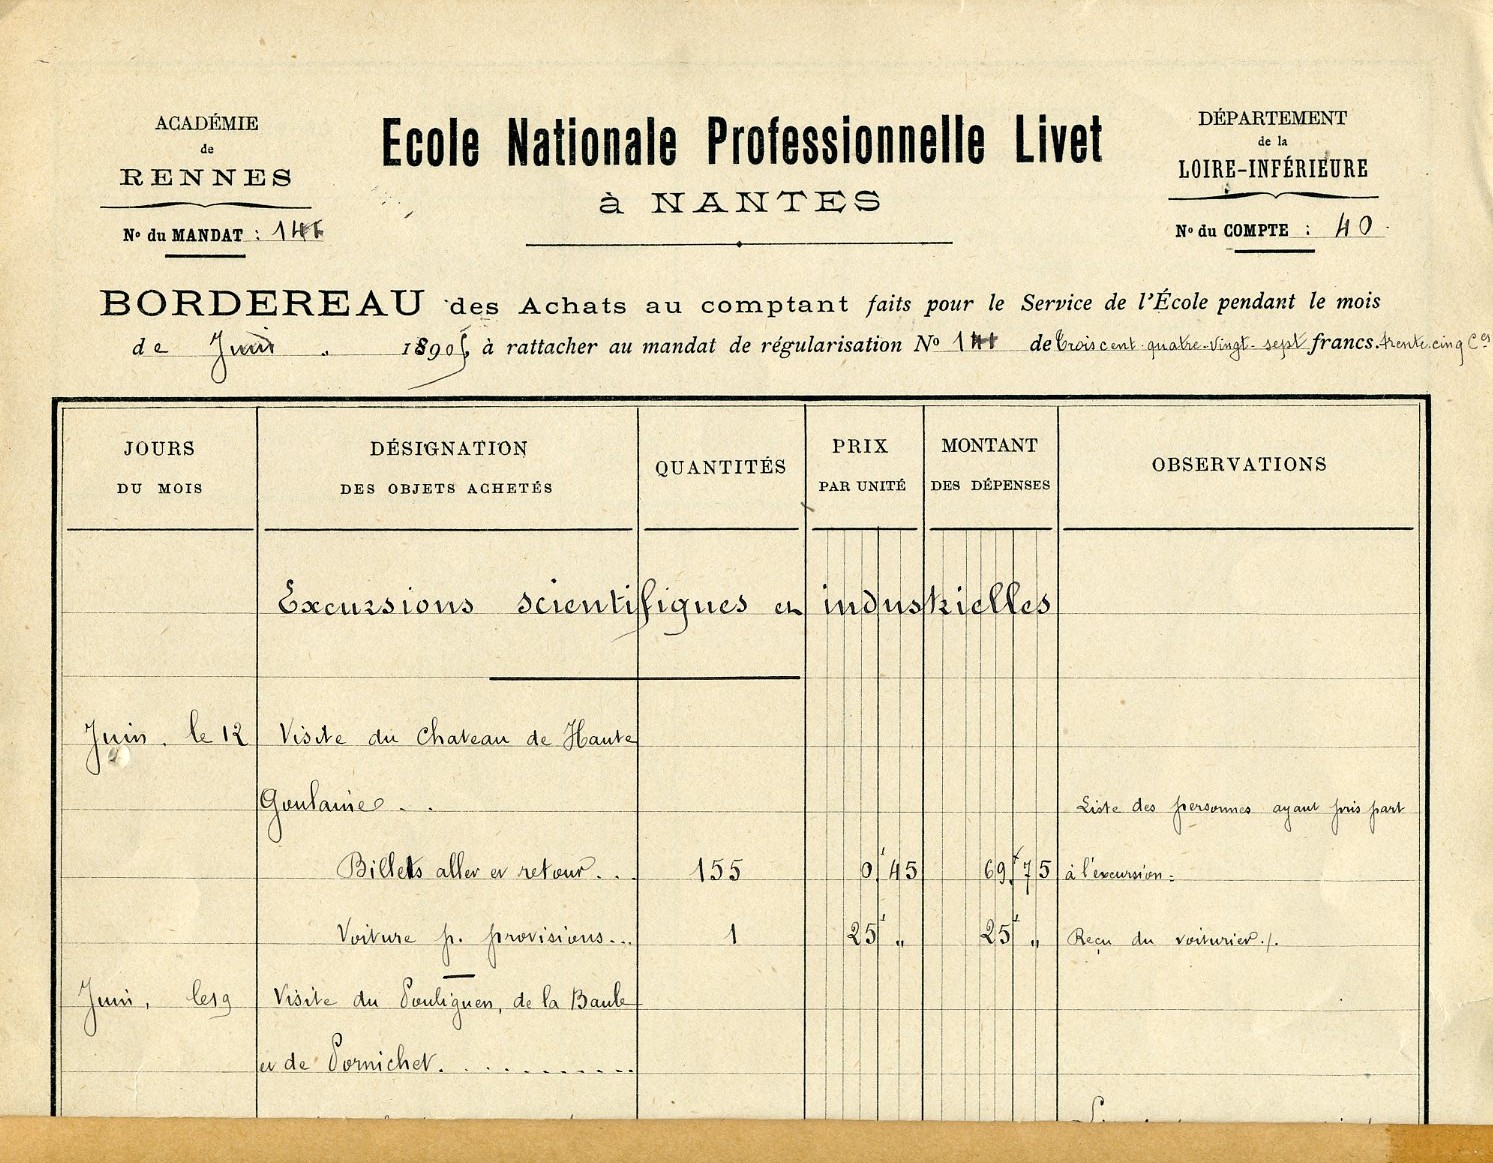 ACADÉMIE
de
RENNES
No du MANDAT : 141
Ecole Nationale Professionnelle Livet
à NANTES
DÉPARTEMENT
de la
LOIRE-INFÉRIEURE
No du COMPTE : 40
BORDEREAU des Achats au comptant faits pour le Service de l'École pendant le mois
de Juin 1905, à rattacher au mandat de régularisation No 141 de Trois cent quatre-vingt-sept francs. trente cinq Ces
JOURS DU MOIS
DÉSIGNATION DES OBJETS ACHETÉS
QUANTITÉS
PRIX PAR UNITÉ
MONTANT DES DÉPENSES
OBSERVATIONS
Excursions scientifiques et industrielles
Juin. le 12 Visite du Chateau de Haute
Goulaine . . Liste des personnes ayant pris part
Billets aller et retour . . . 155 0f 45 69f 75 à l'excursion.
Voiture p. provisions... 1 25f " 25f " Reçu du voiturier ./.
Juin, le 19 Visite du Pouliguen, de la Baule
et de Pornichet. . . . . . . . . .